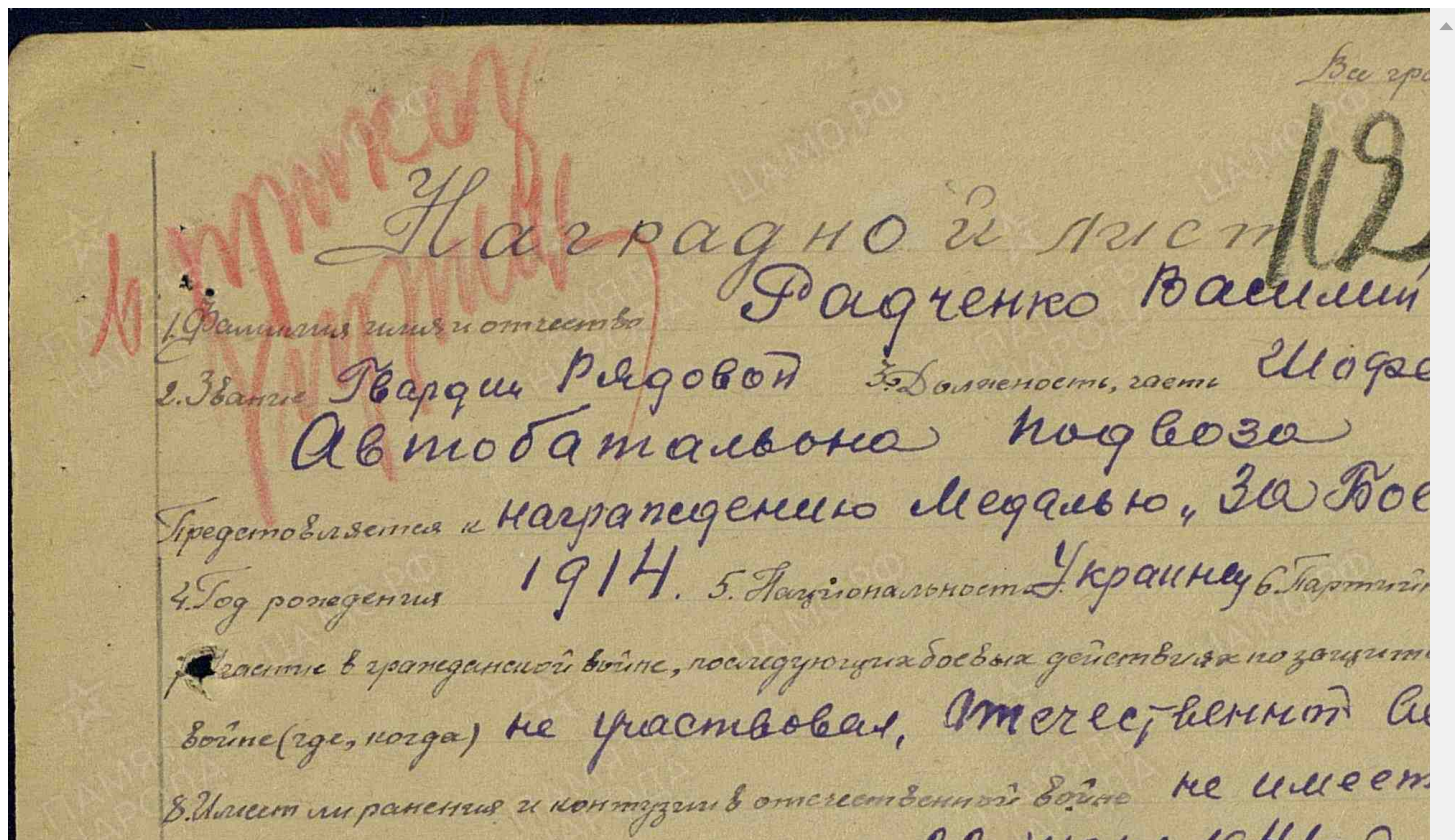 Вы гра
в приказ
112
Наградной лист
1. Фамилия имя и отчество Радченко Василий
2. Звание Гвардии Рядовой 3. Должность, часть Шофе
Автобатальона подвоза
Представляется к награждению Медалью „За Бое
4. Год рождения 1914. 5. Национальность Украинец 6. Партийн
7. Участие в гражданской войне, последующих боевых действиях по защите
войне (где, когда) не участвовал, Отечественной
8. Имеет ли ранения и контузии в отечественной войне не имеет
ЦА МО.РФ
ПАМЯТЬ НАРОДА